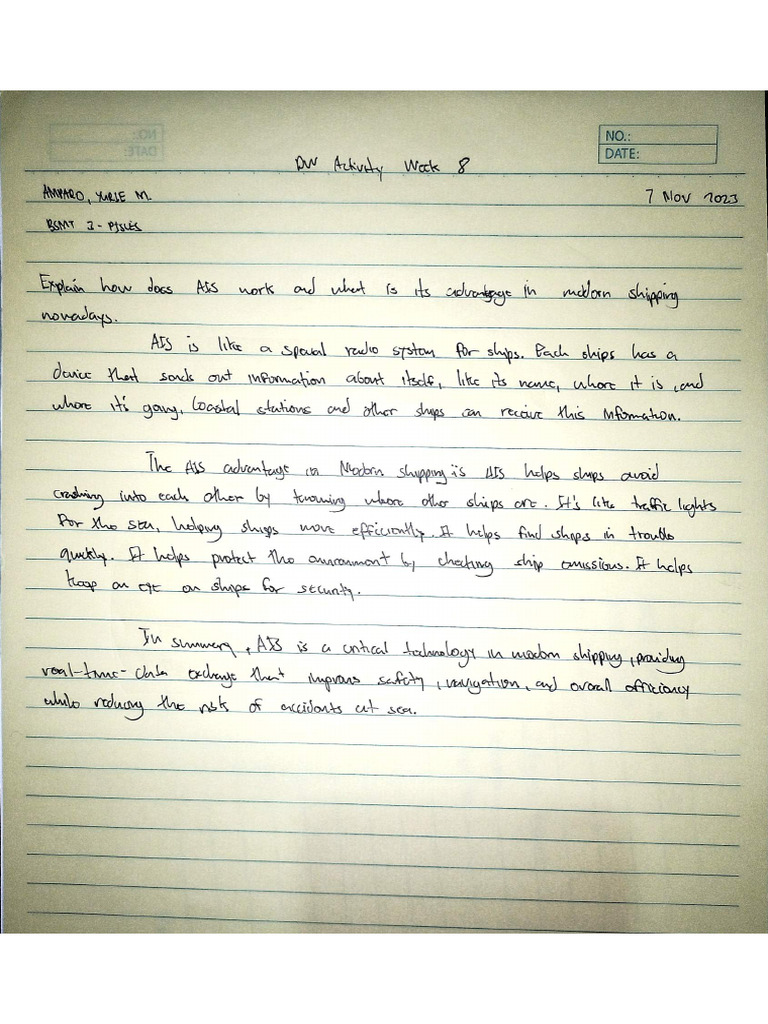 NO.:
DATE:
DW Activity Week 8
AMPARO, YURIE M. 7 NOV 2023
BSMT 3 -
Explain how does AIS work and what is its advantage in modern shipping
nowadays.
AIS is like a special radio system for ships. Each ships has a
device that sends out information about itself, like its name, where it is, and
where it's going. Coastal stations and other ships can receive this information.
The AIS advantage in Modern shipping is AIS helps ships avoid
crashing into each other by knowing where other ships are. It's like traffic lights
for the sea, helping ships move efficiently. It helps find ships in trouble
quickly. It helps protect the environment by checking ship emissions. It helps
keep an eye on ships for security.
In summary, AIS is a critical technology in modern shipping, providing
real-time-data exchange that improves safety, navigation, and overall efficiency
while reducing the risk of accidents at sea.